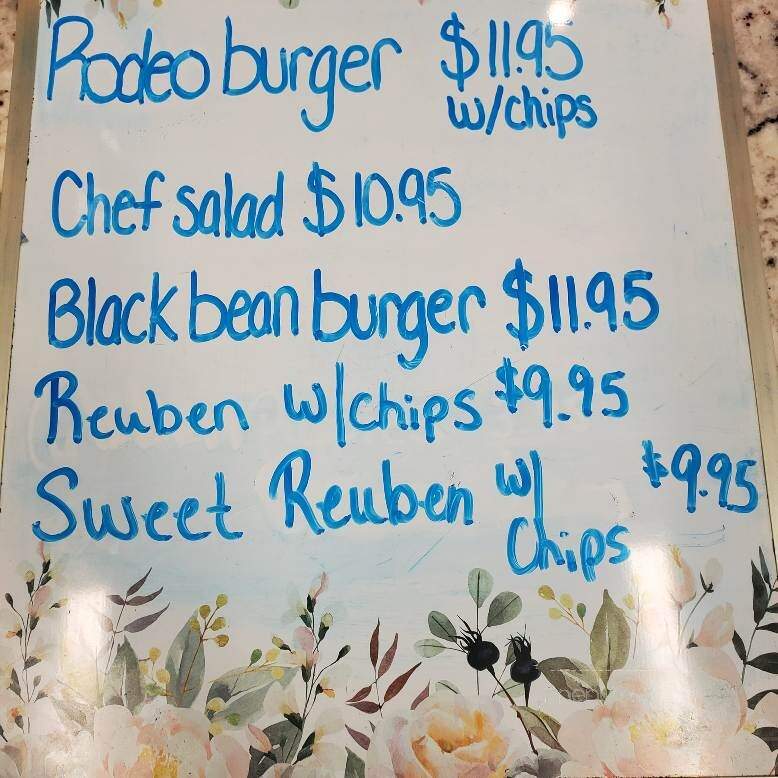 Rodeo burger $11.95
w/chips
Chef salad $10.95
Black bean burger $11.95
Reuben w/chips $9.95
Sweet Reuben w/ $9.95
Chips